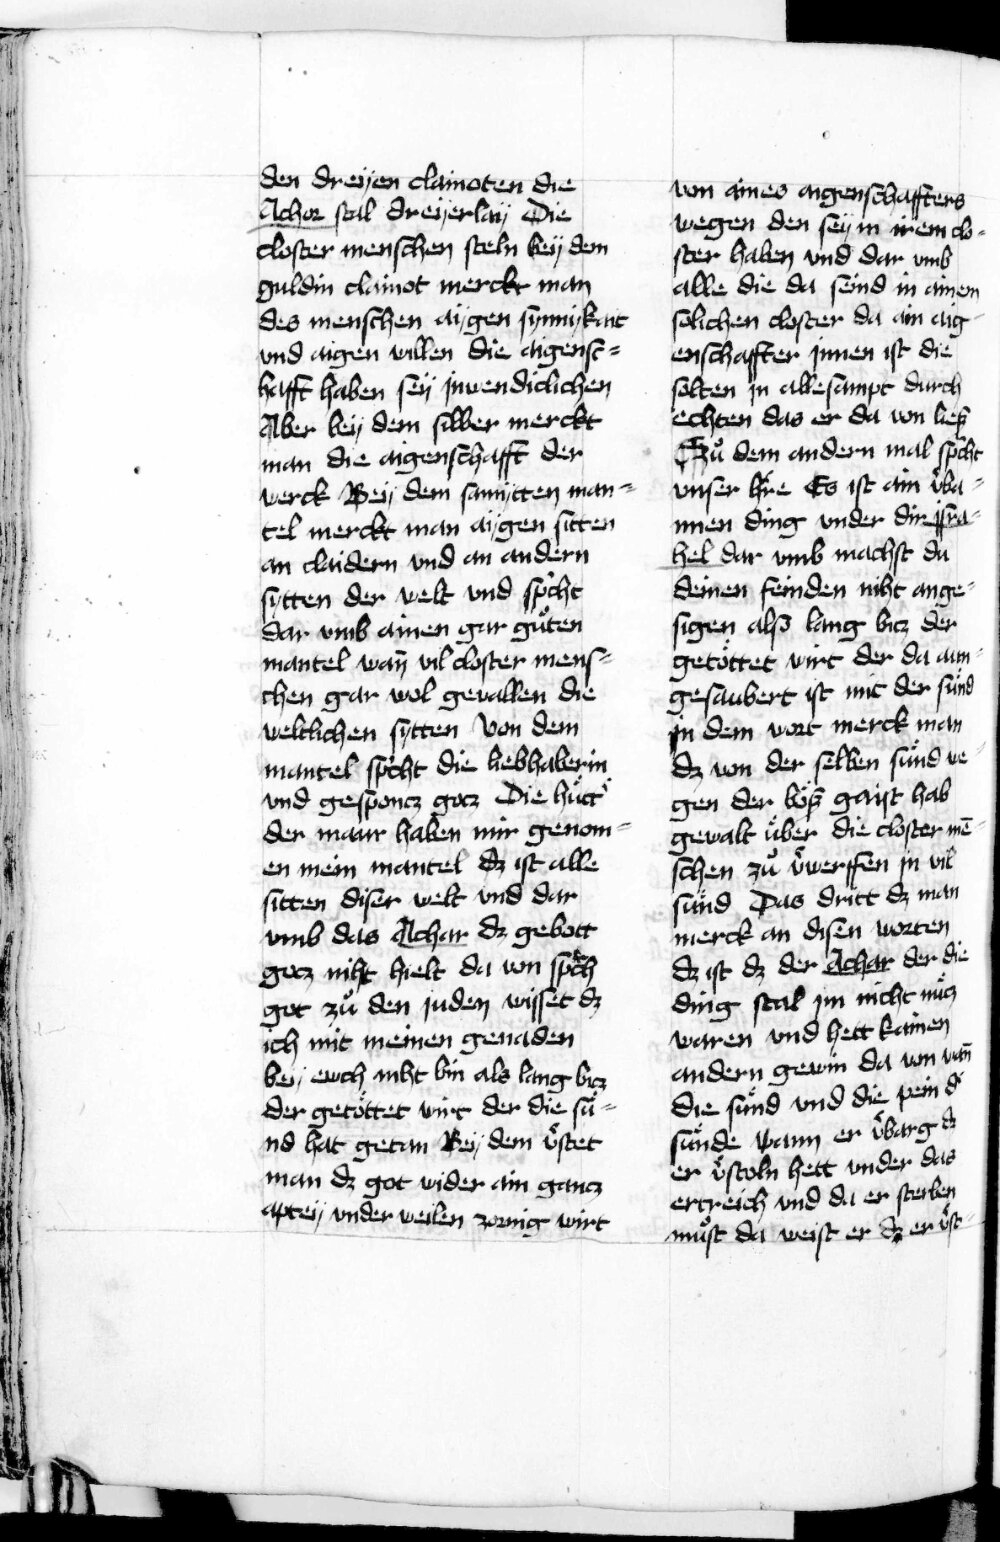 den dreijen clainoten die
Achor stal dreijerlaij Die
closter menschen steln beij dem
guldin clainot merckt man
des menschen aijgen synnijkait
vnd aigen willen die aigensc=
hafft haben seij jnwendiclichen
Aber beij dem silber merckt
man die aigenschafft der
werck Beij dem samijtten man=
tel merckt man aijgen sitten
an claidern vnd an andern
sytten der welt vnd spͥcht
dar vmb ainen gar guͦten
mantel wan̄ vil closter mens=
chen gar wol gevallen die
weltlichen sytten Von dem
mantel spͥcht die liebhaberin
vnd gesponcz gocz Die huͤtt͛
der maur haben mir genom=
en mein mantel dz ist alle
sitten diser welt vnd dar
vmb das Achar dz gebott
gocz niht hielt da von spͣch
got zuͦ den juden wisset dz
ich mit meinen genaden
beij ewch niht bin als lang bicz
der getoͤttet wirt der die suͤ=
nd hat getan Beij dem v͛stet
man dz got wider ain gancz
apteij vnder weilen zornig wirt
von aines aigenschaffters
wegen den seij in irem clo=
ster haben vnd dar vmb
alle die da seind in ainem
solichen closter da ain aig=
enschaffter jnnen ist die
solten jn allesampt durch
echten das er da von ließ
Zuͦ dem andern mal spͥcht
vnser h͛re Es ist ain v͛ba=
nnen ding vnder dir jsra=
hel dar vmb machst du
deinen feinden niht ange=
sigen alß lang bicz der
getoͤttet wirt der da aun=
gesaubert ist mit der suͤnd
jn dem wort merck man
dz von der selben suͤnd we
gen der boͤß gaist hab
gewalt uͤber die closter mē=
schen zuͦ v͛werffen jn vil
suͤnd Das dritt dz man
merck an disen worten
dz ist dz der Achar der die
ding stal jm nicht nuͤcz
waren vnd hett kainen
andern gewin da von wan̄
die suͤnd vnd die pein d͛
suͤnde wann er v͛barg dz
er v͛stoln hett vnder das
ertreich vnd da er sterben
muͦst da weist er dz er v͛st=